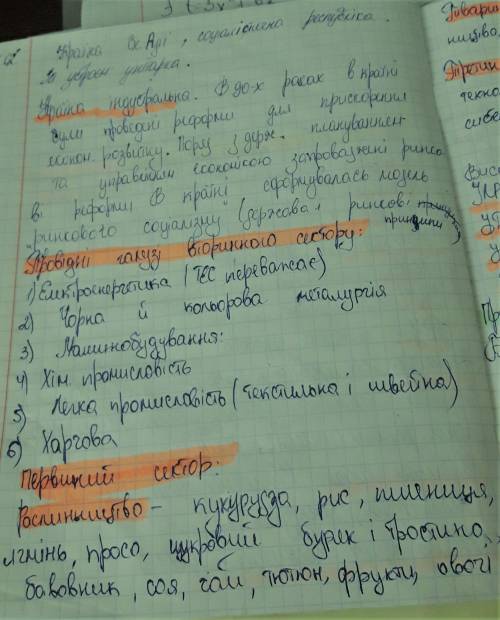 Країна Сх Азії, соціалістична республіка.
За устроєм унітарка.
Країна індустріальна. В 90-х роках в країні
були проведені реформи для прискорення
економ. розвитку. Поряд з держ. плануванням
та управлінням економікою запроваджені ринко
ві реформи. В країні сформувалась модель
"ринкового соціалізму" (держава і ринкові
принципи)
Провідні галузі вторинного сектору:
1) Електроенергетика (ТЕС переважає)
2) Чорна й кольорова металургія
3) Машинобудування:
4) Хім. промисловість
5) Легка промисловість (текстильна і швейна)
6) Харчова
Первинний сектор:
Рослинництво - кукурудза, рис, пшениця,
ячмінь, просо, цукровий буряк і тростина,
бавовник, соя, чай, тютюн, фрукти, овочі
Тварин
ництво,
техно